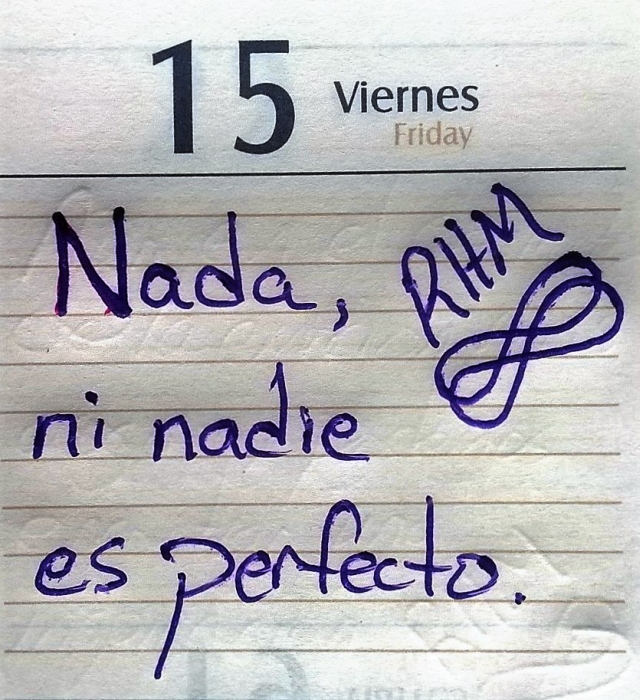 15 Viernes
Friday
Nada, RHM
ni nadie
es perfecto.